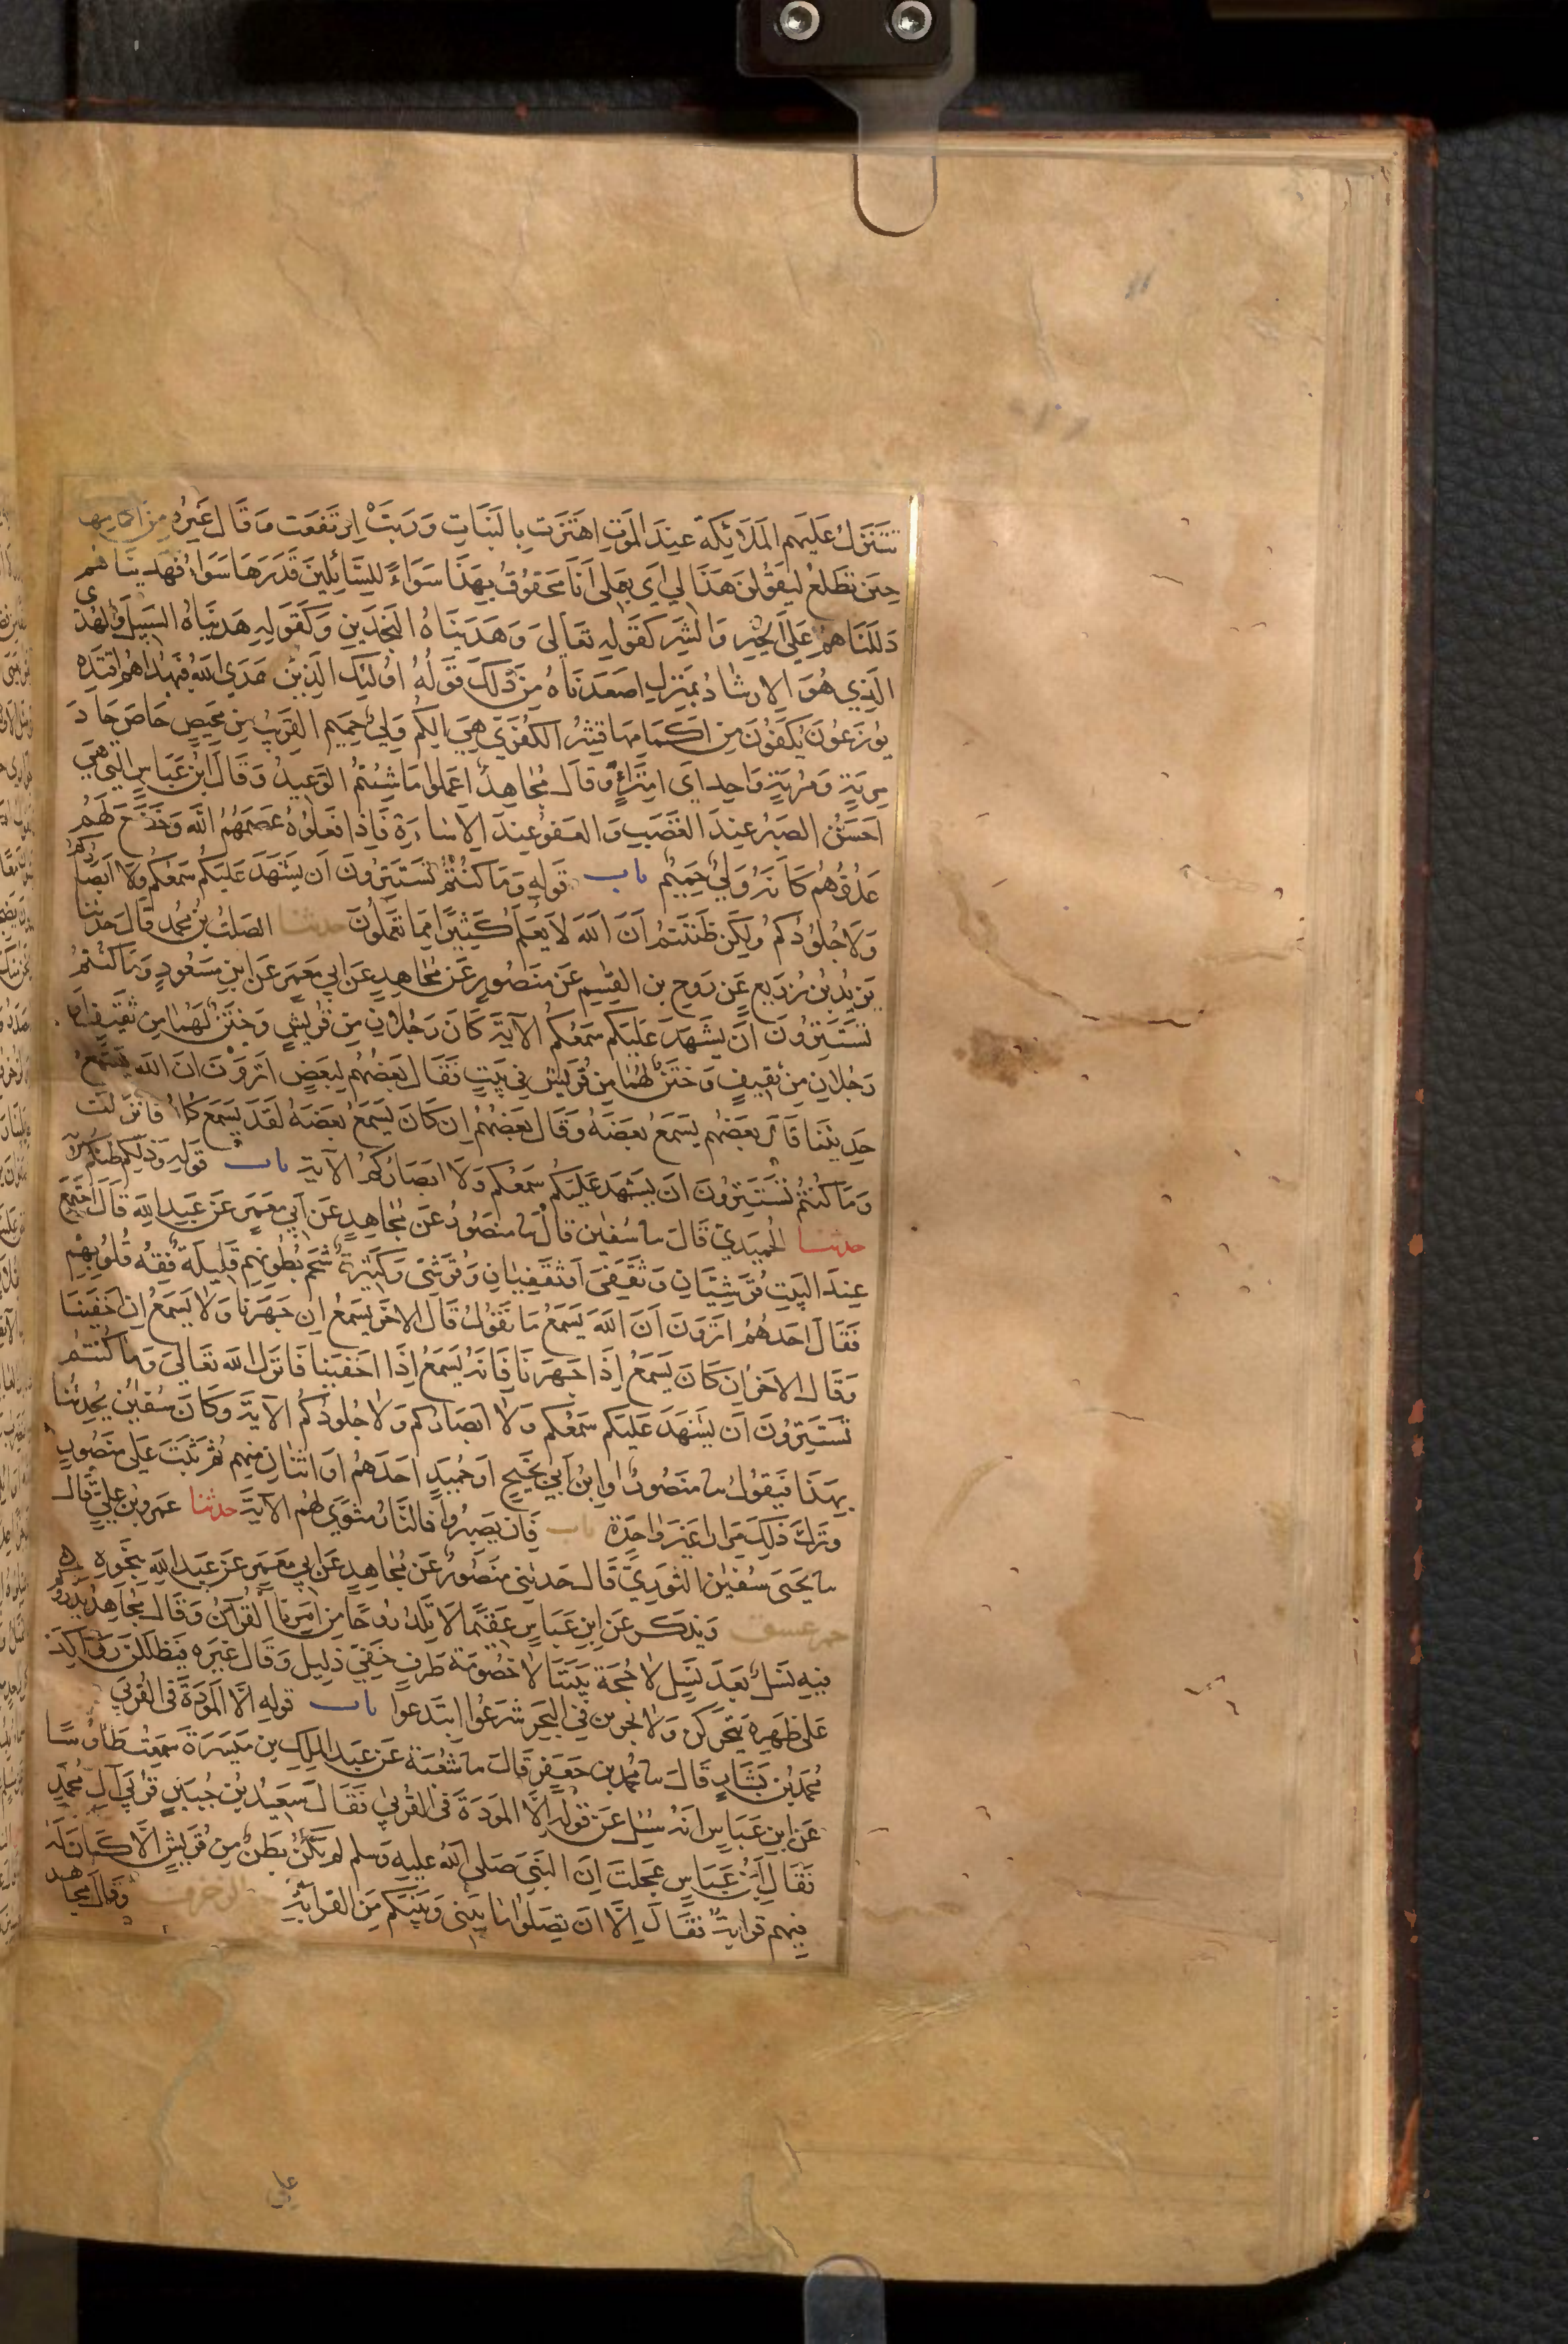 تَتَنَزَّلُ عَلَيهِم المَلَائِكَة عِندَ المَوتِ اهتَزَّت بِالنَبَاتِ وَرَبَتْ اِرتَفَعَت وَقَالَ غَيرُهُ مِن اكمامها
حِينَ تَطلعُ ليَقُولَنَّ هَذَا لِي اَي بِعَمَلِي اَنَا مَحقُوقٌ بِهَذَا سَوَاءً لِلسَّائِلِينَ قَدَّرَهَا سَوَاءً فَهَدَينَاهُم
دَلَلنَاهُم عَلَى الخَيرِ وَالشَر كَقَولِهِ تَعَالىَ وَهَدَينَاهُ النَجدَينِ وَكَقَولِهِ هَدَينَاهُ السَبِيلَ وَالهُدَى
الَّذِي هُوَ الارشادُ بمَنزِلِ اصعَدنَاهُ مِن ذَلكَ قَولُهُ اوُلئِكَ الَذِينَ هَدَى اللهُ فَبِهُدَاهُم اقتَدِه
يُوزَعُونَ يُكَفّونَ مِن اَكمَامِهَا قِشرُ الكُفُرَّى هِيَ الكُم وَليٌّ حَمِيم القَرِيبُ مِن مَحِيصٍ حَاصَ حَادَ
مِريَةٍ وَمُريَةٍ وَاحِد اَي امتِرَاءٌ وَقَالَ مُجَاهِدٌ اعمَلوا مَا شِئتُم الوَعِيدُ وَقَالَ ابنُ عَبَاسٍ الَّتِي هِيَ
احَسَنُ الصَبرُ عِندَ الغَضَبِ وَالعَفوُ عِندَ الاِسَارَة فَاِذا فَعَلُوهُ عَصَمَهُمُ اللّه وَخَضَعَ لَهُم
عَدُوُّهُم كَاَنَهُ وَلِيٌّ حَمِيمٌ باب قَولِهِ وَمَا كُنتُم تَستَتِرُونَ اَن يَشهَدَ عَلَيكُم سَمعُكُم وَلَا اَبصَارُكُم
وَلَا جُلُودُكُم وَلَكِن ظَنَنتُم اَنَّ اللهَ لَا يَعلَمُ كَثِيرًا مِمَا تَعمَلُونَ حدثنا الصَلتُ بنُ مُحَمد قَالَ حَدثنَا
يَزِيدُ بنُ زُرَيعٍ عَن رَوحِ بنِ القٰسِمِ عَن مَنصُورٍ عَن مُجَاهِدٍ عَن ابِي مَعمَرَ عَن ابنِ مَسعُودٍ وَمَا كُنتُم
تَستَتِرُونَ اَن يَشهَدَ عَلَيكُم سَمعُكُم الآيَةَ كَانَ رَجُلَانِ مِن قُرَيشٍ وَخَتَنٌ لَهُمَا مِن ثَقِيفٍ اَو
رَجُلَانِ مِن ثقيفٍ وَخَتَنٌ لَهُمَا مِن قُرَيشٍ فِي بَيتٍ فَقَالَ بَعضُهُم لِبَعضٍ اتَرَوْنَ انَ اللهَ يَسمَعُ
حَدِيثَنَا قَالَ بَعضُهُم يَسمَعُ بَعضَهُ وَقَالَ بَعضُهُم اِن كَانَ يَسمَعُ بَعضَهُ لَقَد يَسمَع كُلهُ فَاُنزِلَت
وَمَا كُنتُم تَستَتِرُونَ اَن يَشهَدَ عَلَيكُم سَمعُكُم وَلَا ابصَارُكُم الآيَة باب قَولِهِ وَذَلِكُم ظَنُّكُم الآية
حدثنا الحُمَيدِيّ قَالَ ثنا سُفيٰن قَالَ ثنا مَنصُورٌ عَن مُجَاهِدٍ عَن اَبِي مَعمَرٍ عَن عَبدِ اللهِ قَالَ اجتَمَعَ
عِندَ البَيتِ قُرَشِيَّانِ وَثَقَفِىّ اَو ثَقَفِيَّانِ وَقُرَشِيّ وَكَثِيرَةٌ شَحم بُطُونِهِم قَلِيلَة فِقهُ قُلُوبِهِم
فَقَالَ احَدهُم اتَرَونَ اَنَّ اللهَ يَسمَعُ مَا نَقُولُ قَالَ الاخَر يَسمَعُ اِن جَهَرنَا وَلَا يَسمَعُ اِن اخفَينَا
وَقَالَ الاخَرُ اِن كَانَ يَسمَعُ اِذَا جَهَرنَا فَاِنَّهُ يَسمَعُ اِذَا اخفَينَا فَانزَل الله تَعَالىَ وَمَا كُنتُم
تَستَتِرُونَ اَن يَشهَدَ عَلَيكُم سَمعُكُم وَلَا ابصَارُكُم وَلَا جُلُودُكُم الآيَةَ وَكَانَ سُفيٰنُ يُحَدِثُنَا
بِهَذَا فَيَقُولُ ثنا مَنصُورٌ او ابنُ اَبِي نَجِيحٍ او حُمَيد احَدهُم او اثنَانِ مِنهُم ثُمَّ ثَبَتَ عَلَى مَنصُورٍ
وَتَرَكَ ذَلِكَ مِرَارا غَيرَ وَاحِدَة باب فَاِن يَصبِرُوا فَالنَّارُ مَثوًى لَهُم الآيَةَ حدثنا عَمرُو بنُ عَلِيّ قَالَ
ثنا يَحيَى سُفيٰن الثَورِيّ قَالَ حَدثَنِي مَنصُورٌ عَن مُجَاهِدٍ عَن ابِي مَعمَرٍ عَن عَبدِ اللهِ بِنَحوِهِ
حم عسق وَيُذكَر عَن ابنِ عَبَاسٍ عَقِيمًا لَا تَلِدُ رُوحًا مِن اَمرِنَا القُرآنُ وَقَالَ مُجَاهِدٌ يَذرَؤُكُم
فِيهِ نَسلٌ بَعدَ نَسلٍ لَا حُجَةَ بَينَنَا لَا خُصُومَة طَرفٍ خَفِيّ ذَلِيل وَقَالَ غَيرُه فَيَظلَلنَ رَوَاكِدَ
عَلَى ظَهرِه يَتَحَرَّكنَ وَلَا يَجرِينَ فِي البَحرِ شَرَعُوا ابتَدَعُوا باب قَولِهِ الَّا المَوَدَّةَ فِى القُربَى
مُحَمدُ بنُ بَشَارٍ قَالَ ثنا مُحَمد بن جَعفَرٍ قَالَ ثنا شُعبَة عَن عَبدِ المَلِكِ بنِ مَيسَرَةَ سَمِعتُ طَاوُسًا
عَن ابنِ عَبَاسٍ اَنَّهُ سُئِل عَن قَولِهِ الَّا المَوَدَّةَ فِى القُربَى فَقَالَ سَعِيدُ بنُ جُبَيرٍ قُربَى آلِ مُحَمَّدٍ
فَقَالَ ابنُ عَبَاسٍ عَجِلتَ اِنَّ النَّبِيَّ صَلى الله عليه وَسلم لَم يَكُن بَطنٌ مِن قُرَيشٍ الَّا كَانَ لَهُ
فِيهِم قَرَابَةٌ فَقَالَ اِلَّا ان تَصِلُوا مَا بَينِي وَبَينَكُم مِنَ القَرَابَةِ حم الزخرف وَقَالَ مجاهد
علي